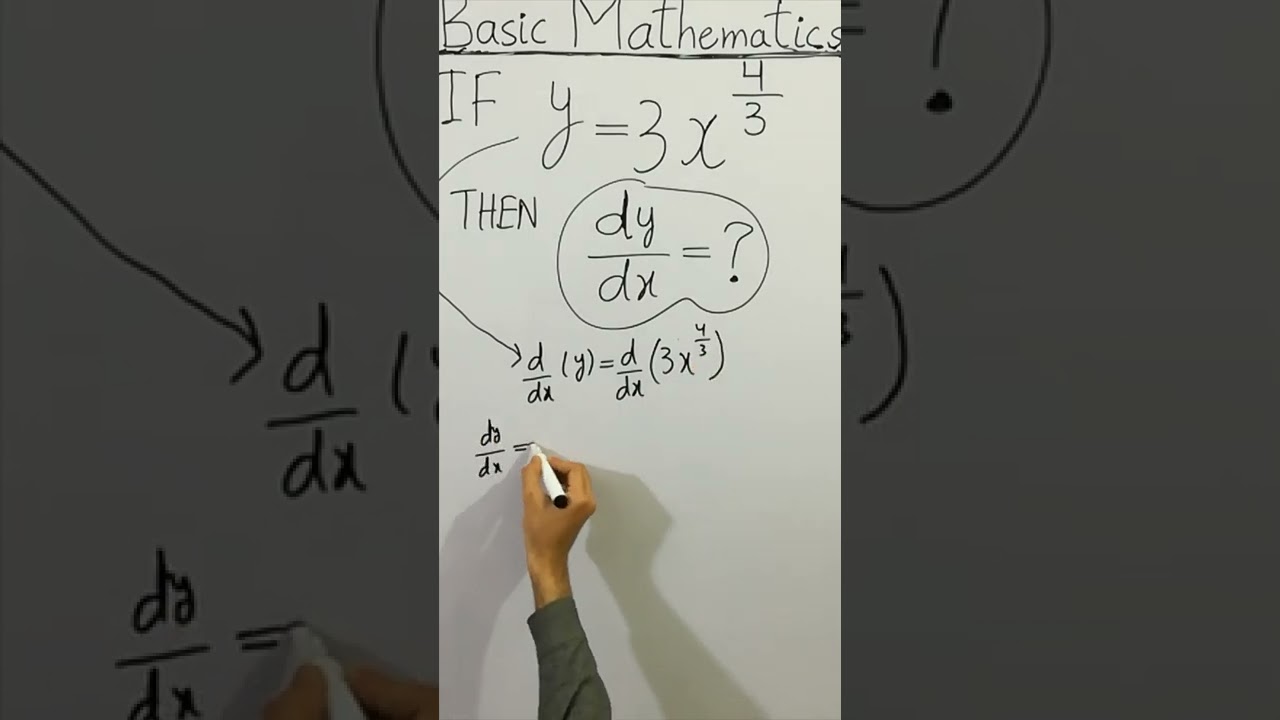 Basic Mathematics
IF y = 3x^(4/3)
THEN dy/dx = ?
d/dx (y) = d/dx (3x^(4/3))
dy/dx =